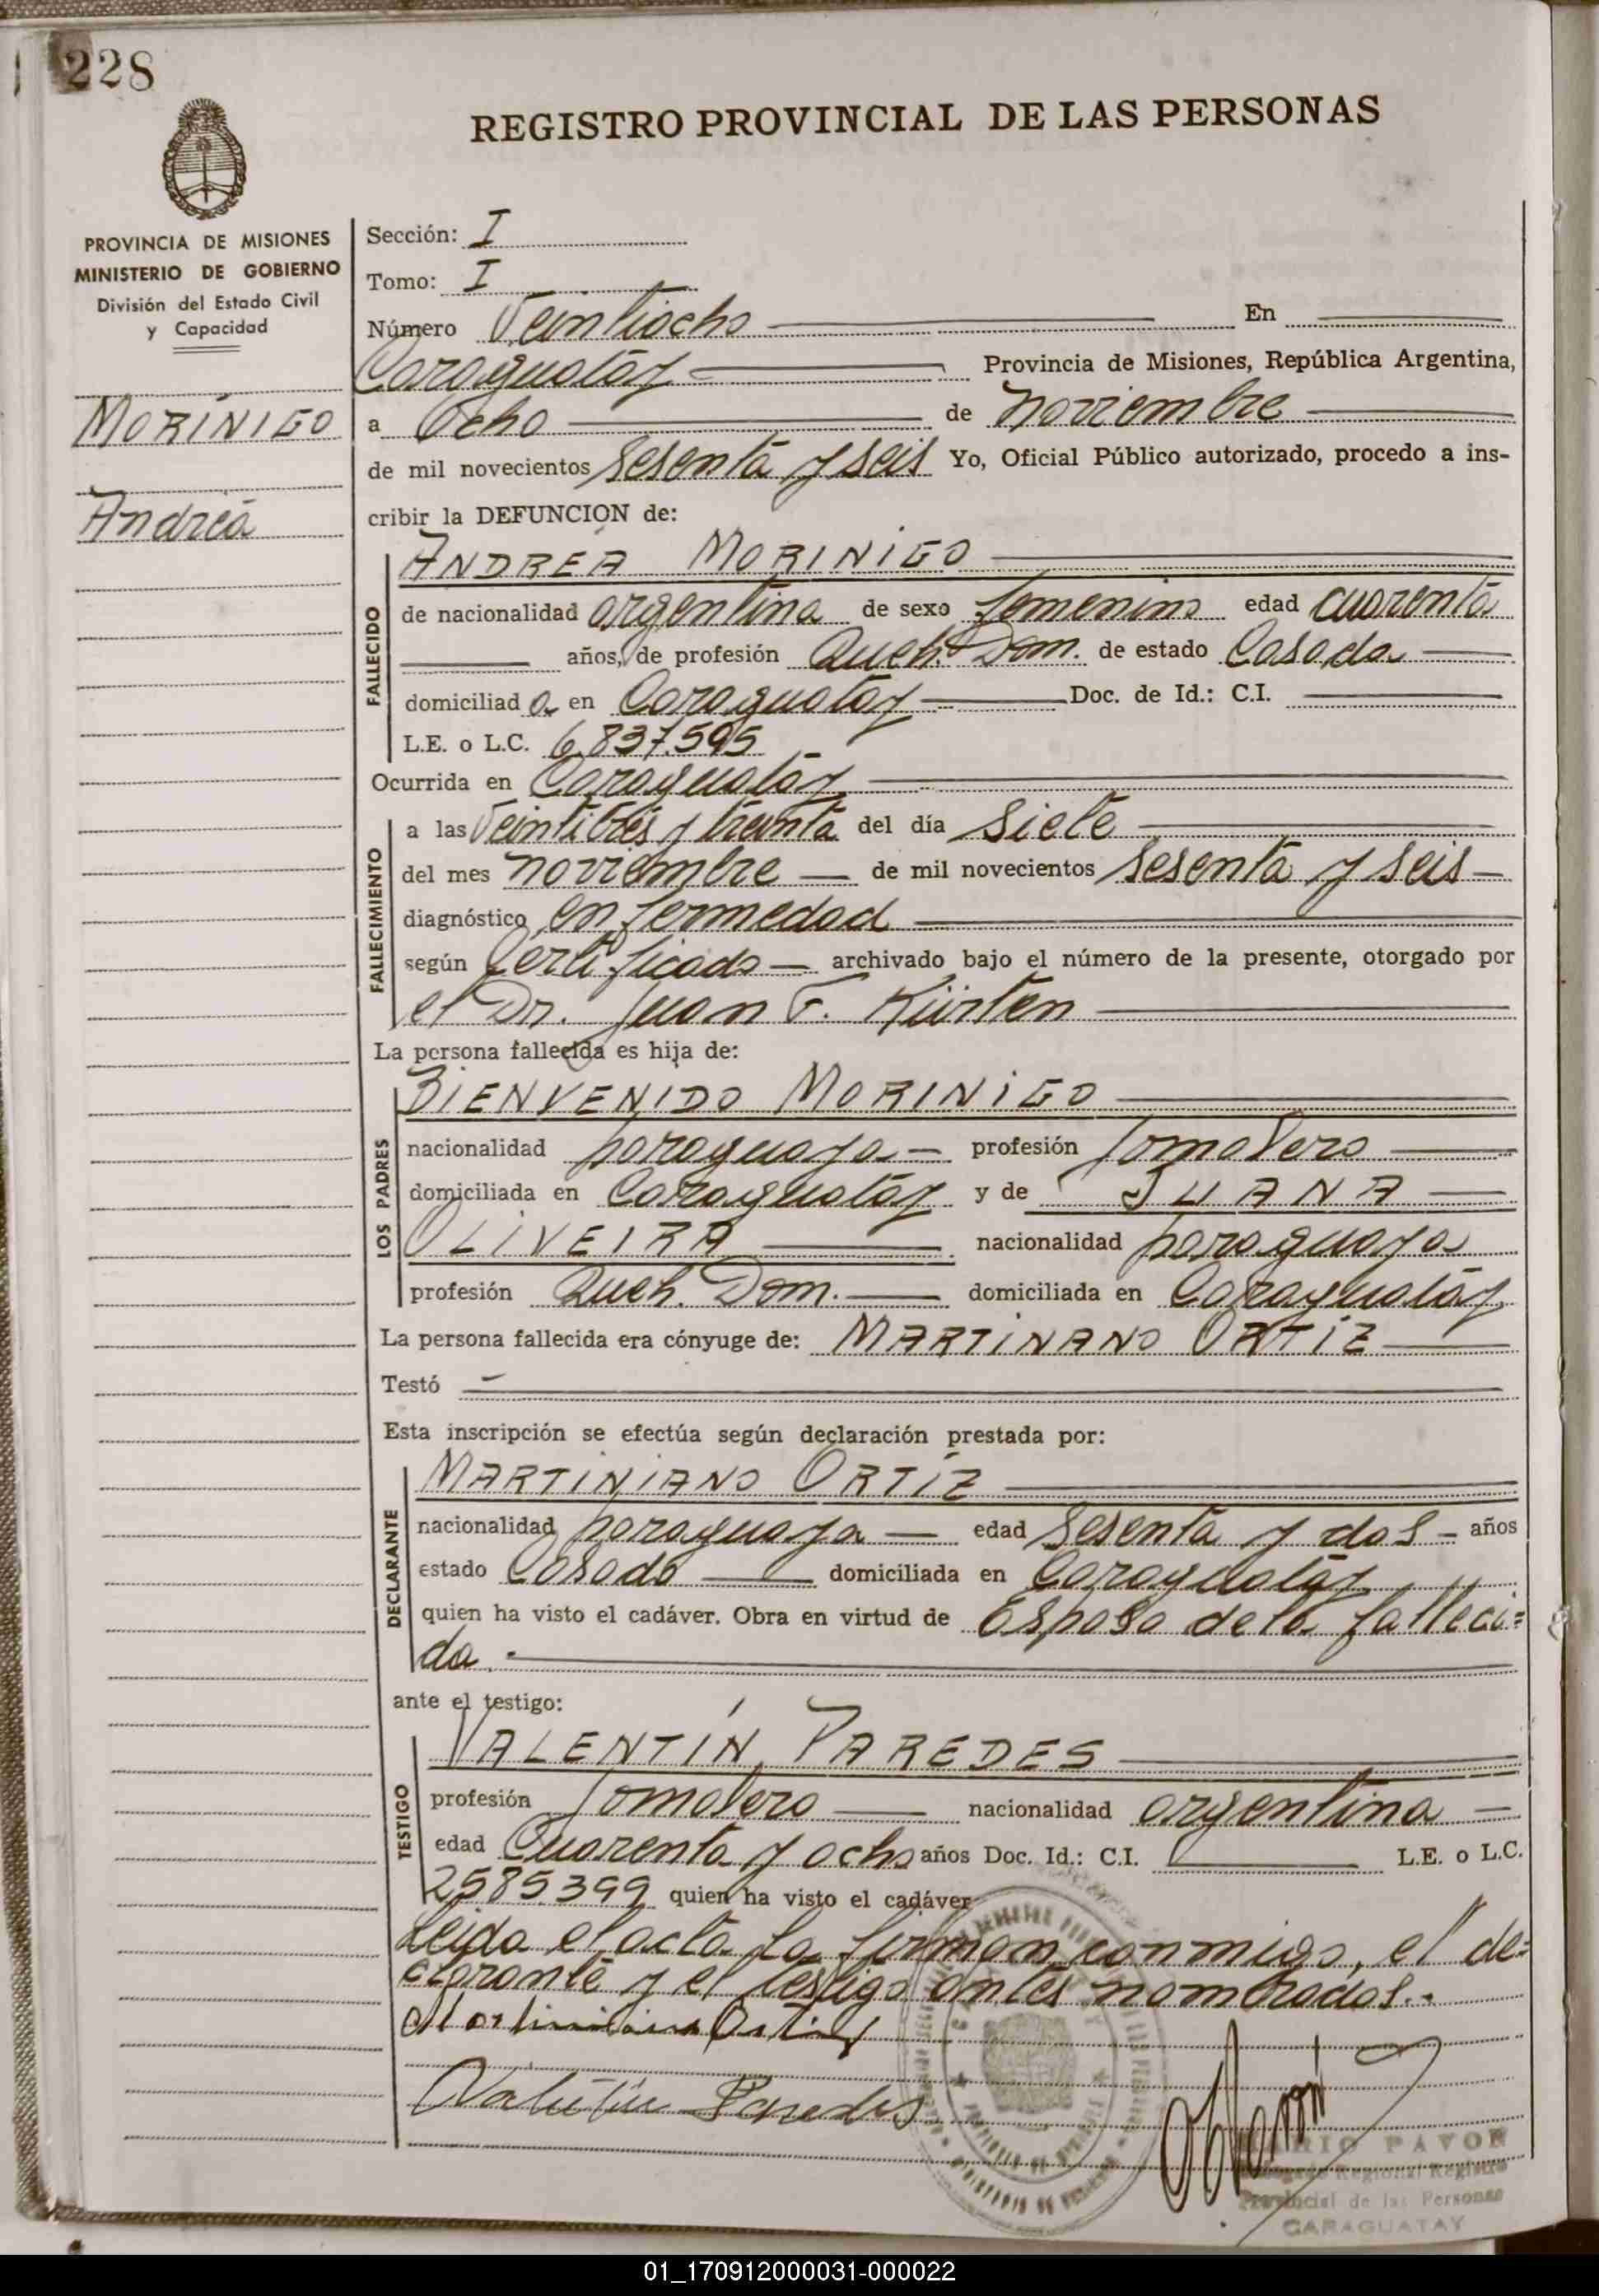 228
REGISTRO PROVINCIAL DE LAS PERSONAS
PROVINCIA DE MISIONES
MINISTERIO DE GOBIERNO
División del Estado Civil
y Capacidad
MORÍNIGO
Andrea
Sección: I
Tomo: I
Número Veintiocho En
Caraguatáy Provincia de Misiones, República Argentina,
a Ocho de noviembre
de mil novecientos sesenta y seis Yo, Oficial Público autorizado, procedo a ins-
cribir la DEFUNCION de:
FALLECIDO
ANDREA MORINIGO
de nacionalidad argentina de sexo femenino edad cuarenta
años, de profesión Queh. Dom. de estado Casada
domiciliad a en Caraguatáy Doc. de Id.: C.I.
L.E. o L.C. 6.837.595
Ocurrida en Caraguatáy
FALLECIMIENTO
a las Veintitrés y treinta del día siete
del mes noviembre de mil novecientos sesenta y seis
diagnóstico enfermedad
según Certificado archivado bajo el número de la presente, otorgado por
el Dr. Juan F. Kürten
La persona fallecida es hija de:
LOS PADRES
BIENVENIDO MORINIGO
nacionalidad paraguaya profesión Jornalero
domiciliada en Caraguatáy y de JUANA
OLIVEIRA nacionalidad paraguaya
profesión Queh. Dom. domiciliada en Caraguatáy
La persona fallecida era cónyuge de: MARTINANO ORTÍZ
Testó
Esta inscripción se efectúa según declaración prestada por:
DECLARANTE
MARTINIANO ORTÍZ
nacionalidad paraguaya edad sesenta y dos años
estado Casado domiciliada en Caraguatáy
quien ha visto el cadáver. Obra en virtud de Esposo de la falleci=
da.
ante el testigo:
TESTIGO
VALENTÍN PAREDES
profesión Jornalero nacionalidad argentina
edad Cuarenta y ocho años Doc. Id.: C.I. L.E. o L.C.
2585.399 quien ha visto el cadáver
Leída el acta la firman conmigo, el de=
clarante y el testigo antes nombrados.
Martiniano Ortiz
Valentín Paredes
MARIO PAVON
Delegado Regional Registro
Provincial de las Personas
CARAGUATAY
01_170912000031-000022